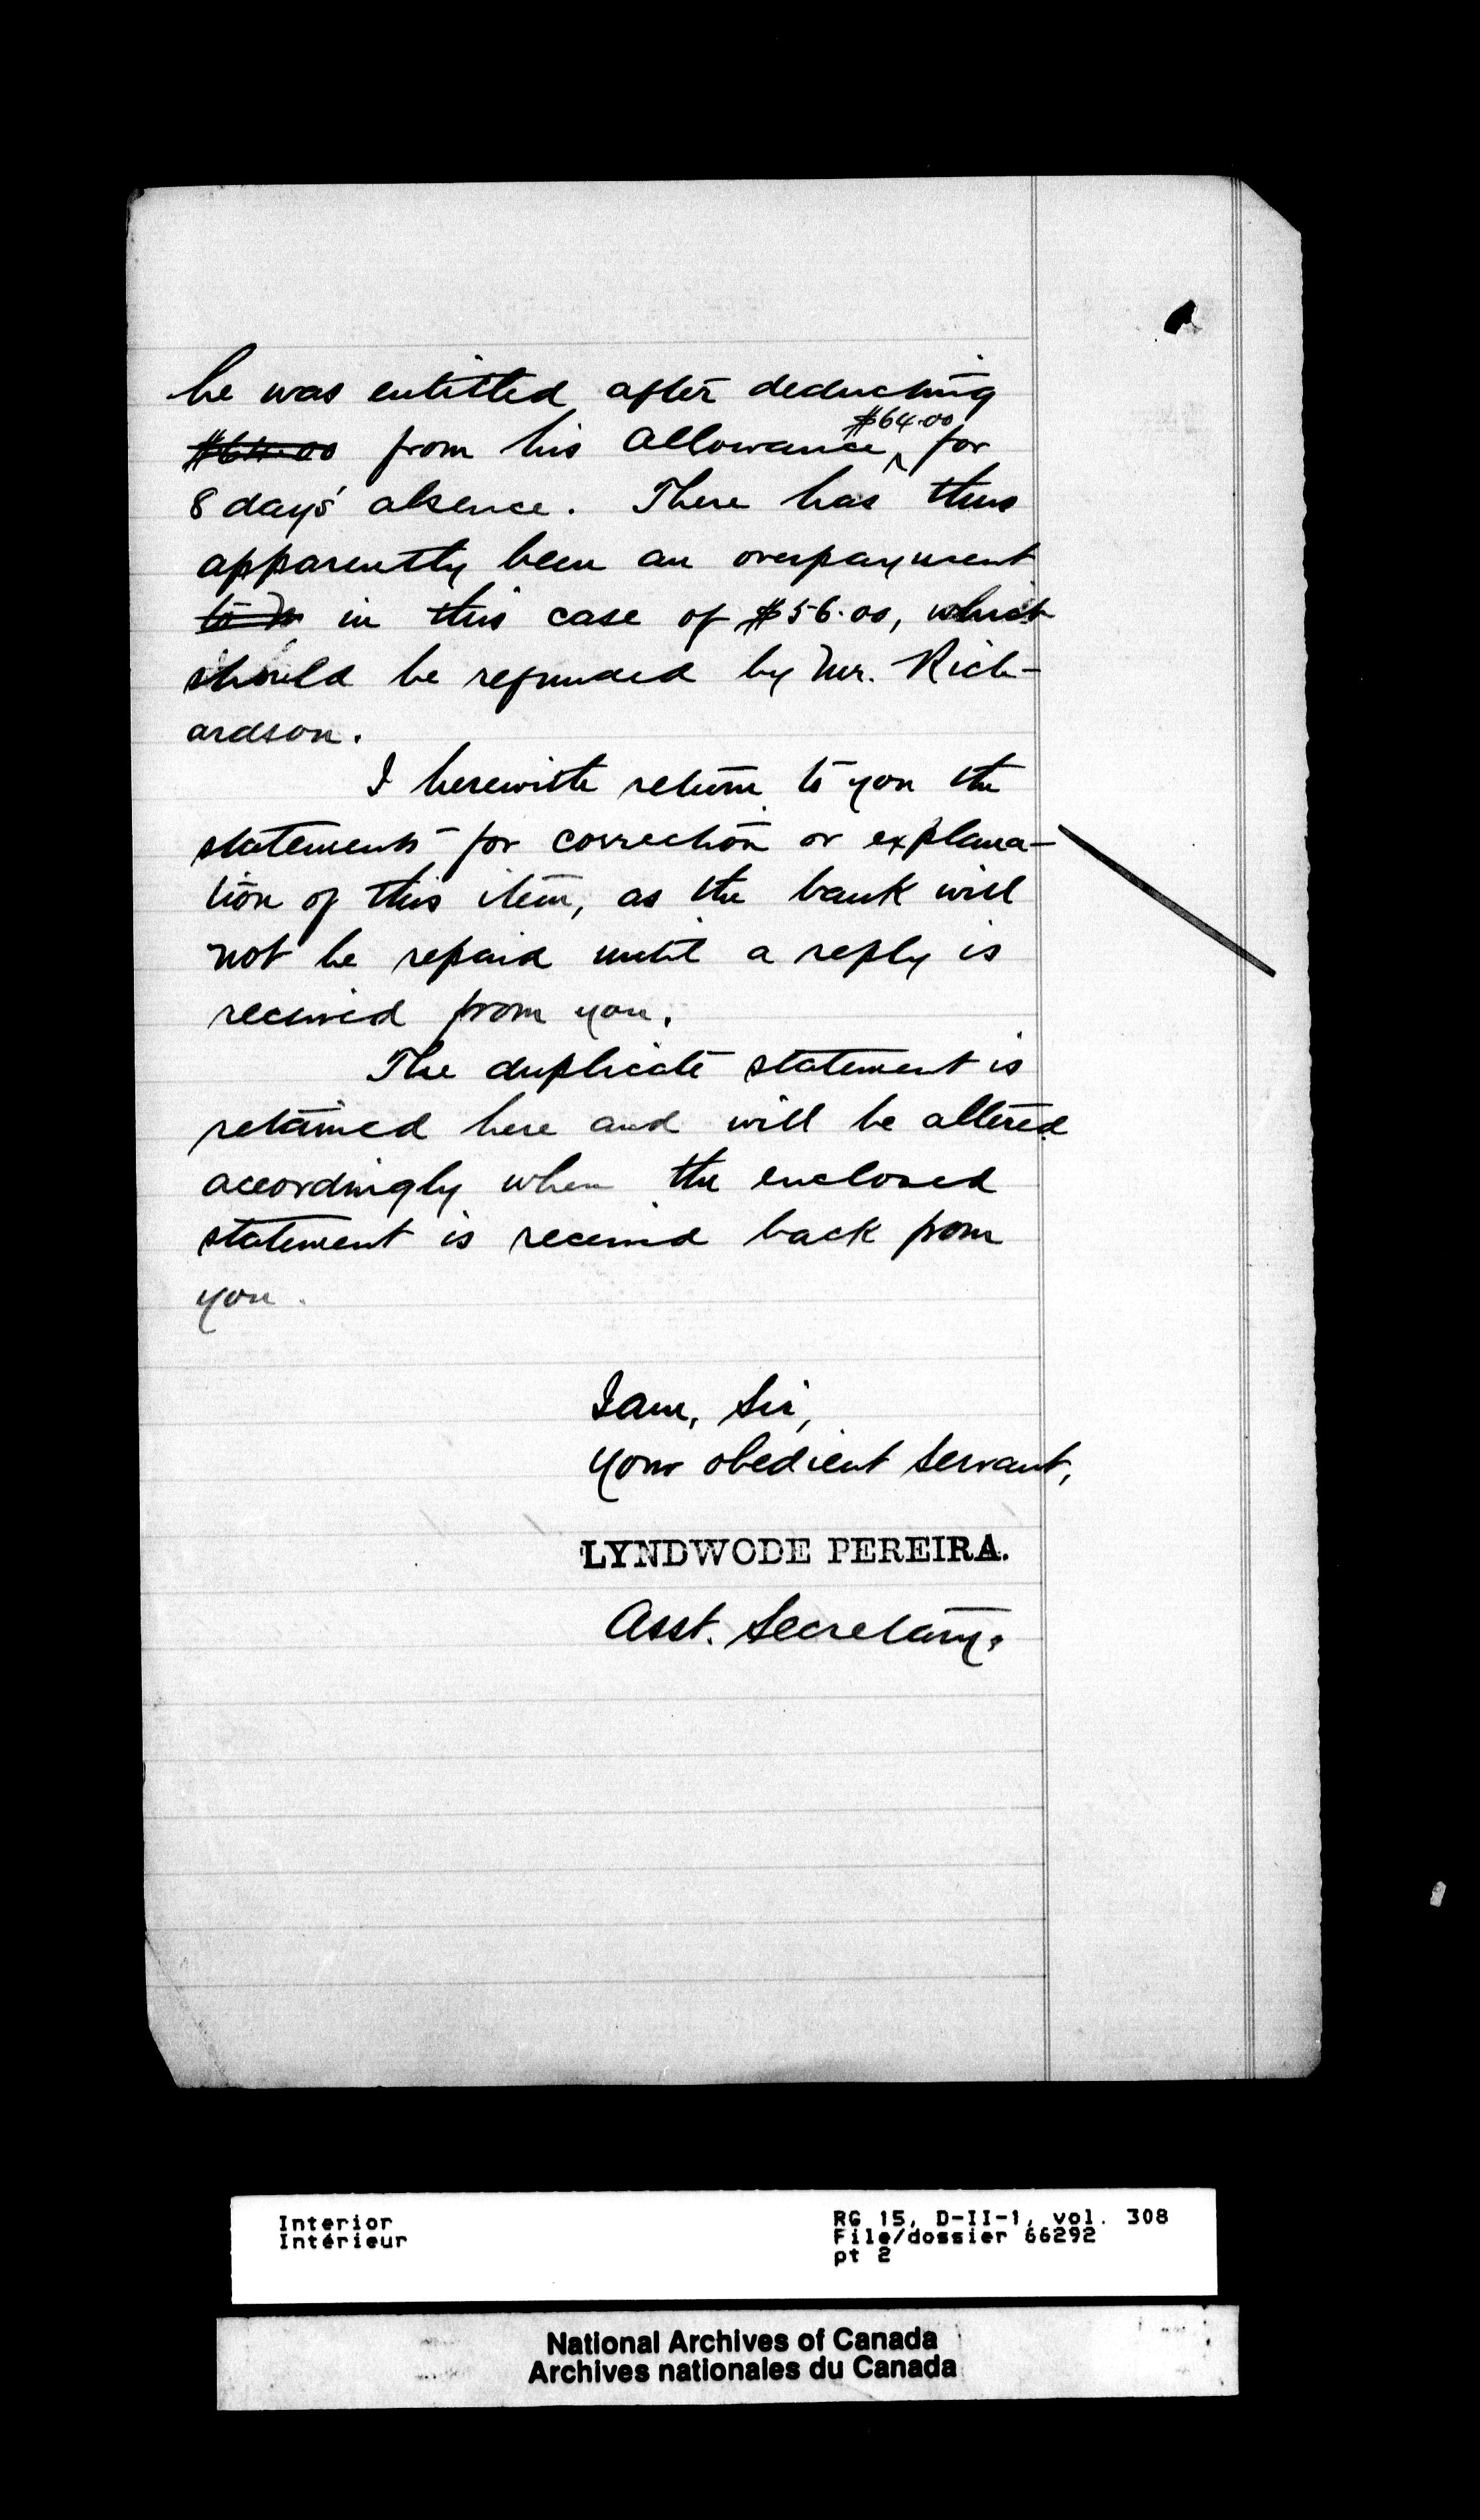 he was entitled after deducting
$64.00 from his allowance ^ $64.00 for
8 days' absence. There has thus
apparently been an overpayment
in this case of $56.00, which
should be refunded by Mr. Rich-
ardson.
I herewith return to you the
statements for correction or explana-
tion of this item, as the bank will
not be repaid until a reply is
received from you.
The duplicate statement is
retained here and will be altered
accordingly when the enclosed
statement is received back from
you.
I am, Sir,
Your obedient servant,
LYNDWODE PEREIRA.
Asst. Secretary.
Interior
Intérieur
RG 15, D-II-1, vol. 308
File/dossier 66292
pt 2
National Archives of Canada
Archives nationales du Canada